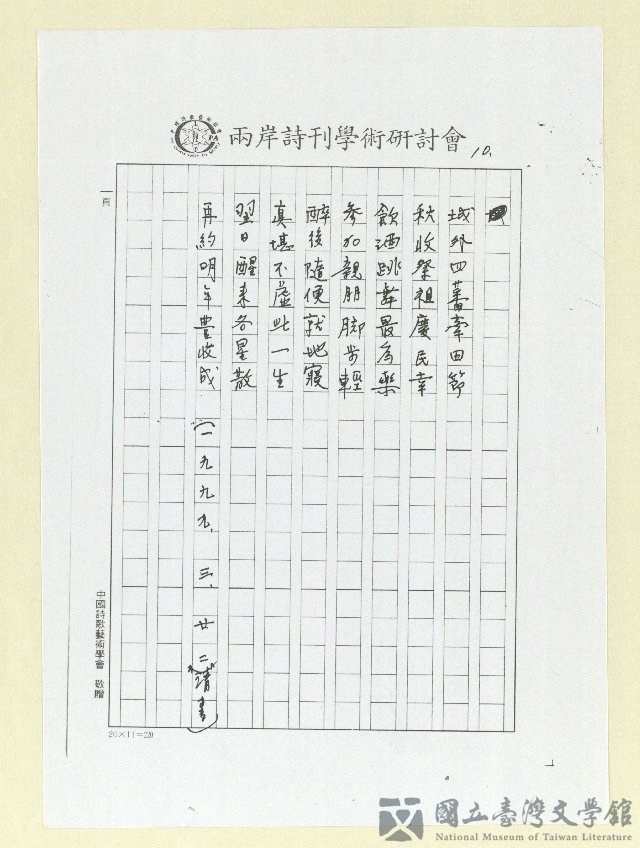 兩岸詩刊學術研討會
10.
城外四蕃牽田節
秋收祭祖慶民幸
飲酒跳舞最為樂
參加親朋脚步輕
醉後隨便就地寢
真堪不虛此一生
翌日醒來各星散
再約明年豐收成 (一九九九.三.廿二 清書)
一頁
中國詩歌藝術學會 敬贈
20×11=220
國立臺灣文學館
National Museum of Taiwan Literature